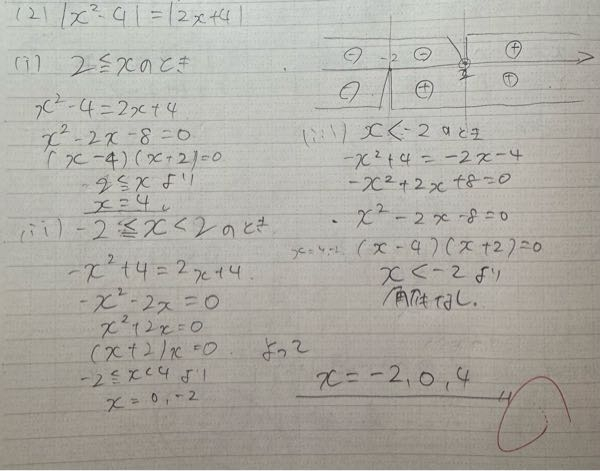 (2) |x²-4|=|2x+4|
(i) 2≦xのとき
x²-4=2x+4
x²-2x-8=0
(x-4)(x+2)=0
2≦xより
x=4
(ii) -2≦x<2のとき
-x²+4=2x+4
-x²-2x=0
x²+2x=0
(x+2)x=0
-2≦x<4より
x=0,-2
⊖ -2 ⊖ ⊕
⊖ ⊕ 2 ⊕
(iii) x<-2のとき
-x²+4=-2x-4
-x²+2x+8=0
x²-2x-8=0
x=4,-2 (x-4)(x+2)=0
x<-2より
解なし.
よって
x=-2,0,4